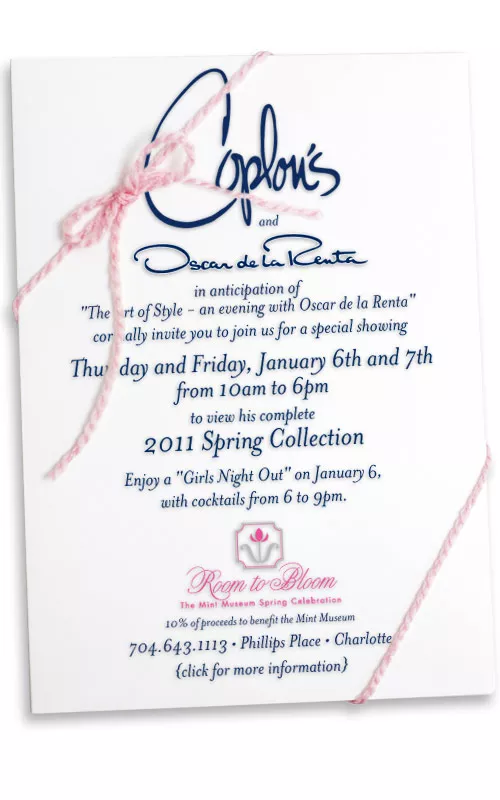 Coplon's
and
Oscar de la Renta
in anticipation of
"The Art of Style – an evening with Oscar de la Renta"
cordially invite you to join us for a special showing
Thursday and Friday, January 6th and 7th
from 10am to 6pm
to view his complete
2011 Spring Collection
Enjoy a "Girls Night Out" on January 6,
with cocktails from 6 to 9pm.
Room to Bloom
The Mint Museum Spring Celebration
10% of proceeds to benefit the Mint Museum
704.643.1113 • Phillips Place • Charlotte
{click for more information}